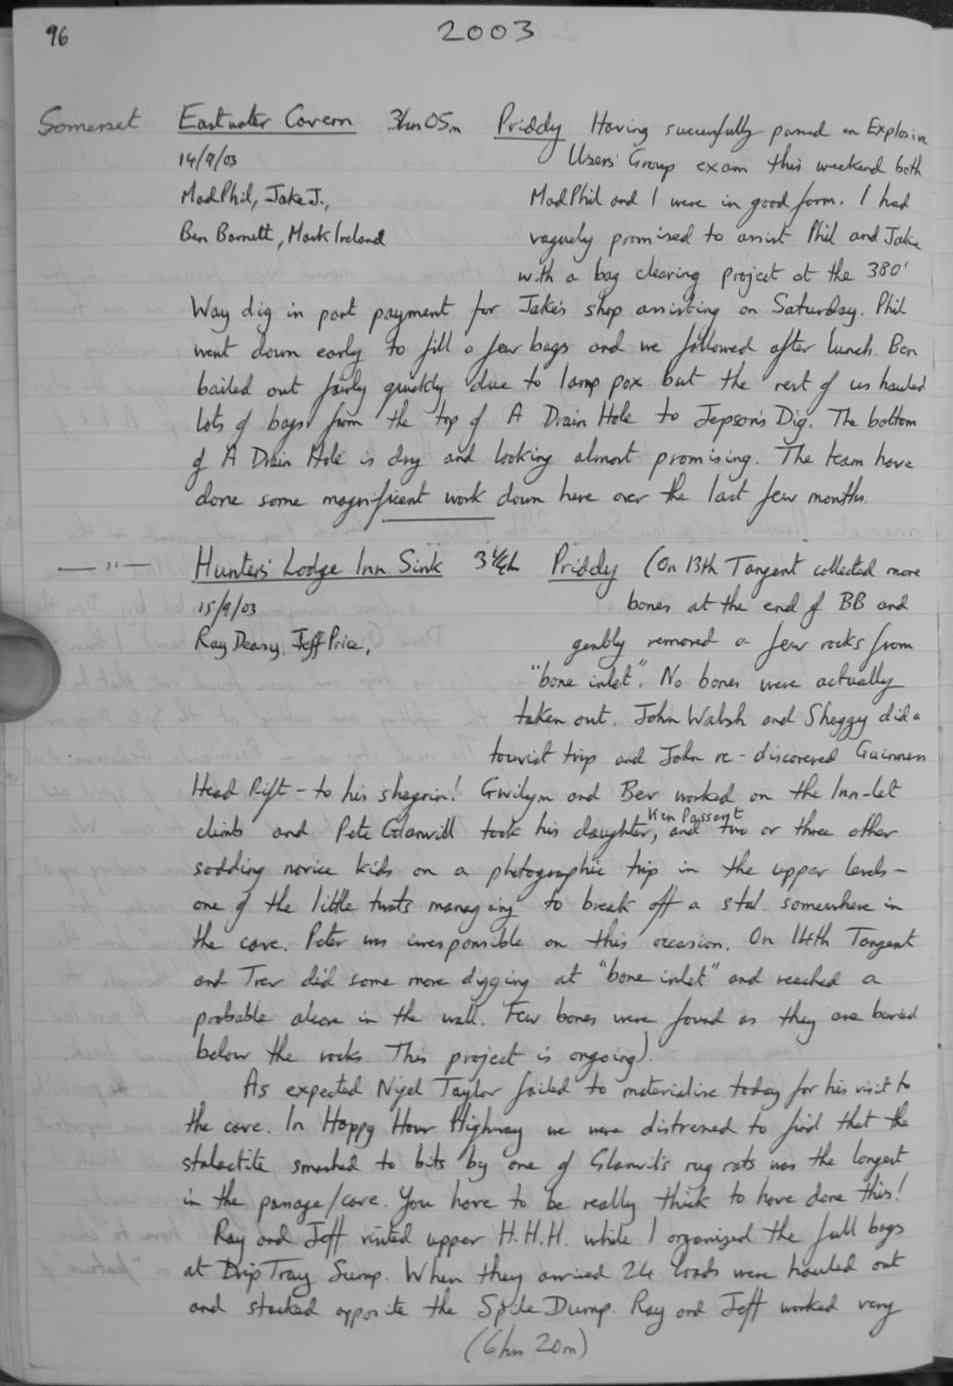 96
2003
Somerset Eastwater Cavern 3hrs 05m Priddy Having successfully passed an Explosive
14/9/03 Users' Group exam this weekend both
MadPhil, Jake J., MadPhil and I were in good form. I had
Ben Barnett, Mark Ireland vaguely promised to assist Phil and Jake
with a bag clearing project at the 380'
Way dig in part payment for Jake's shop assisting on Saturday. Phil
went down early to fill a few bags and we followed after lunch. Ben
bailed out fairly quickly due to lamp pox but the rest of us hauled
lots of bags from the top of A Drain Hole to Jepson's Dig. The bottom
of A Drain Hole is dry and looking almost promising. The team have
done some magnificent work down here over the last few months.
— " — Hunters' Lodge Inn Sink 3¼h Priddy (On 13th Tangent collected more
15/9/03 bones at the end of BB and
Ray Deasy, Jeff Price, gently removed a few rocks from
"bone inlet". No bones were actually
taken out. John Walsh and Shaggy did a
tourist trip and John re-discovered Guinness
Head Rift - to his shagrin! Gwilym and Bev worked on the Inn-let
climb and Pete Glanvill took his daughter, Ken Passant and two or three other
sodding novice kids on a photographic trip in the upper levels -
one of the little twats managing to break off a stal. somewhere in
the cave. Peter was irresponsible on this occasion. On 14th Tangent
and Trev did some more digging at "bone inlet" and reached a
probable alcove in the wall. Few bones were found as they are buried
below the rocks. This project is ongoing).
As expected Nigel Taylor failed to materialise today for his visit to
the cave. In Happy Hour Highway we were distressed to find that the
stalactite smashed to bits by one of Glanvil's rug rats was the longest
in the passage/cave. You have to be really thick to have done this!
Ray and Jeff visited upper H.H.H. while I organised the full bags
at Drip Tray Sump. When they arrived 24 loads were hauled out
and stacked opposite the Spile Dump. Ray and Jeff worked very
(6hrs 20m)